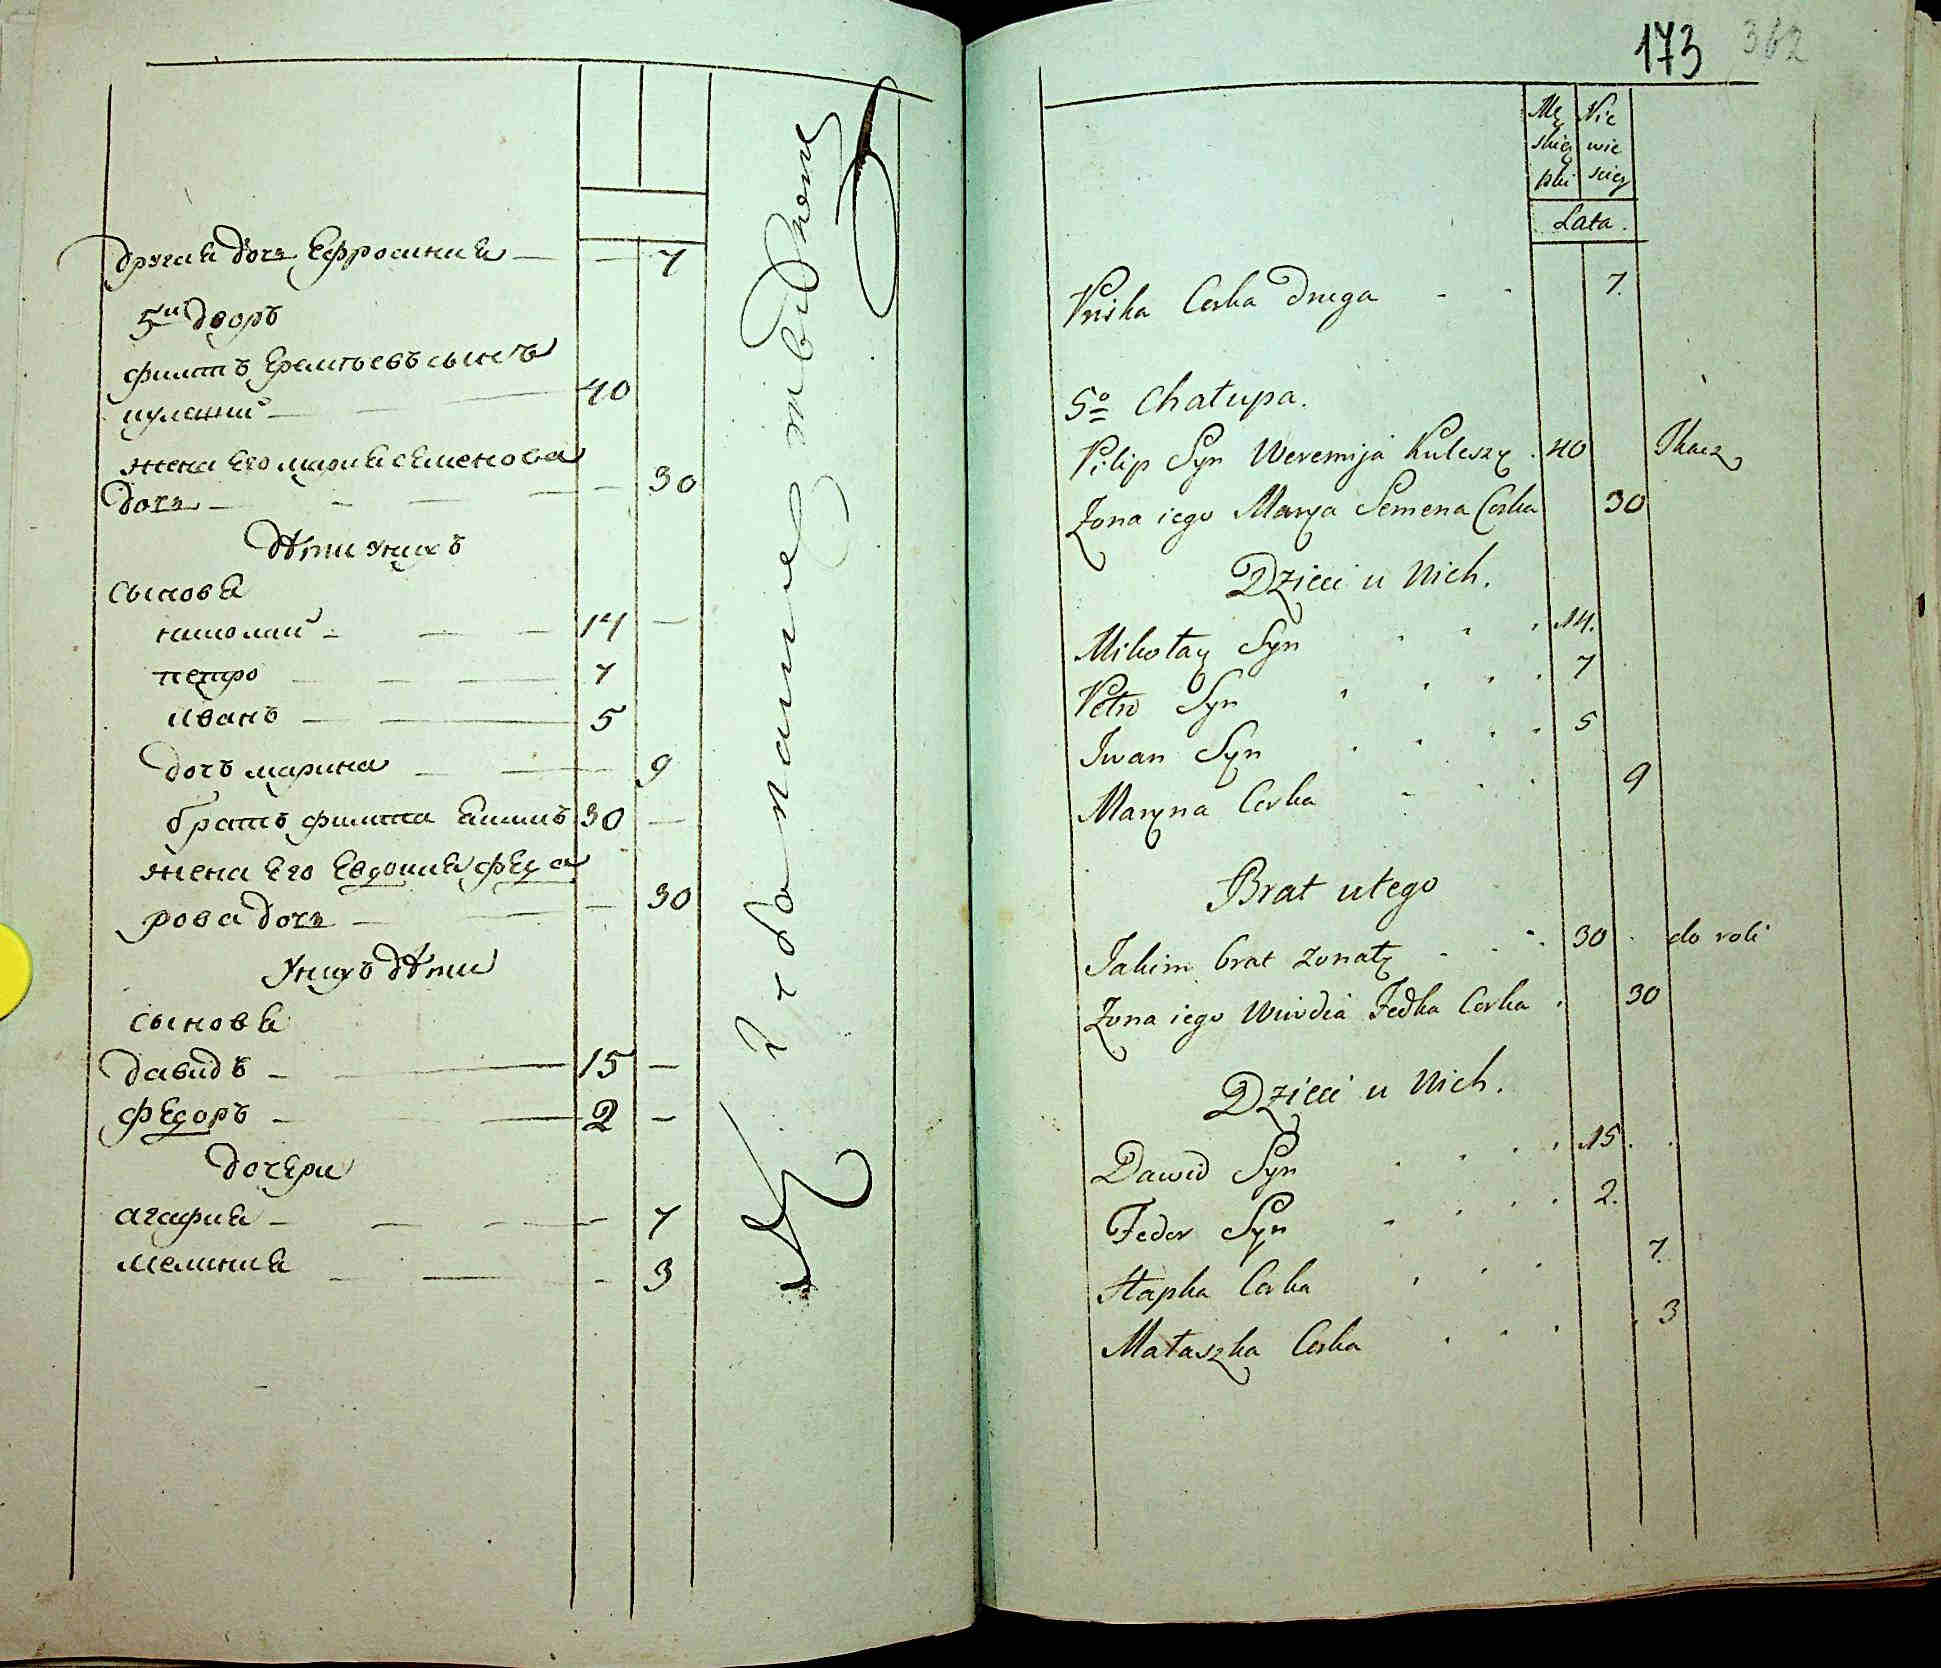 другая дочь Ефросиния — — 7
5й дворъ
филипъ Еремѣевъ сынъ
кулешъ — 40
жена Его мария семенова
дочь — — — 30
дѣти у нихъ
сыновя
николай — — — 14 —
петро — — — 7
иванъ — — 5
дочь марина — — 9
братъ филипа Екимъ 30 —
жена Его Евдокия Федо
рова дочь — — — 30
У нихъ дѣти
сыновя
давидъ — — 15 —
Федоръ — — 2 —
дочери
агафия — — — — 7
мелания — — — 3
173 362
Mę Nie
skiej wie
płci sciey
Lata.
Pruska Corka druga - - 7.
5o Chałupa.
Pilip Syn Weremija Kuleszy . 40 Tkacz
Żona iego Marya Semena Corka 30
Dzieci u Nich.
Mikołay Syn . . . 14.
Petro Syn . . . . 7
Iwan Syn . . . . 5
Maryna Corka - . . 9
Brat u tego
Jakim brat zonaty - . - . 30 . do roli
Żona iego Wiwdia Fedka Corka . 30
Dzieci u Nich.
Dawid Syn . . . . 15 .
Fedor Syn . . . . 2.
Hapka Corka . . . 7.
Małaszka Corka . . . . 3